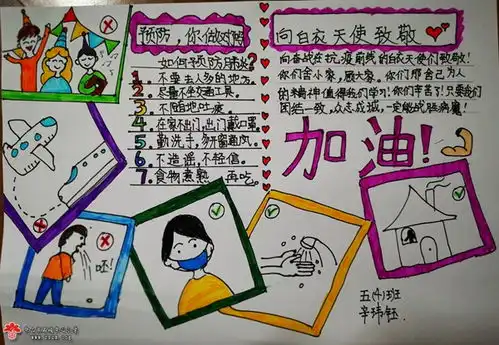 预防,你做对了吗
如何预防肺炎?
1、不要去人多的地方。
2、尽量不坐交通工具。
3、不随地吐痰。
4、在家不出门,出门戴口罩。
5、勤洗手,多开窗通风。
6、不造谣,不轻信。
7、食物煮熟,再吃。
向白衣天使致敬
向奋战在抗疫前线的白衣天使们致敬!
你们舍小家,顾大家,你们那舍己为人
的精神值得我们学习!你们辛苦了!只要我们
团结一致,众志成城,一定能战胜病魔!
加油!
呸!
五(4)班
辛玮钰